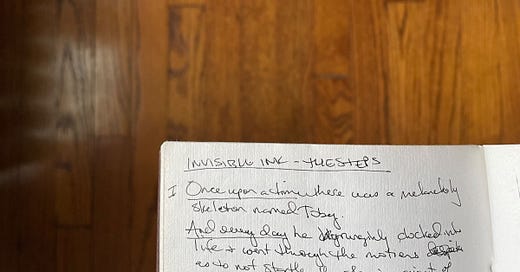 INVISIBLE INK - THE STEPS
I Once upon a time there was a melancholy
skeleton named Toby.
And every day he grudgingly clocked into
life + went through the motions
as to not startle the living